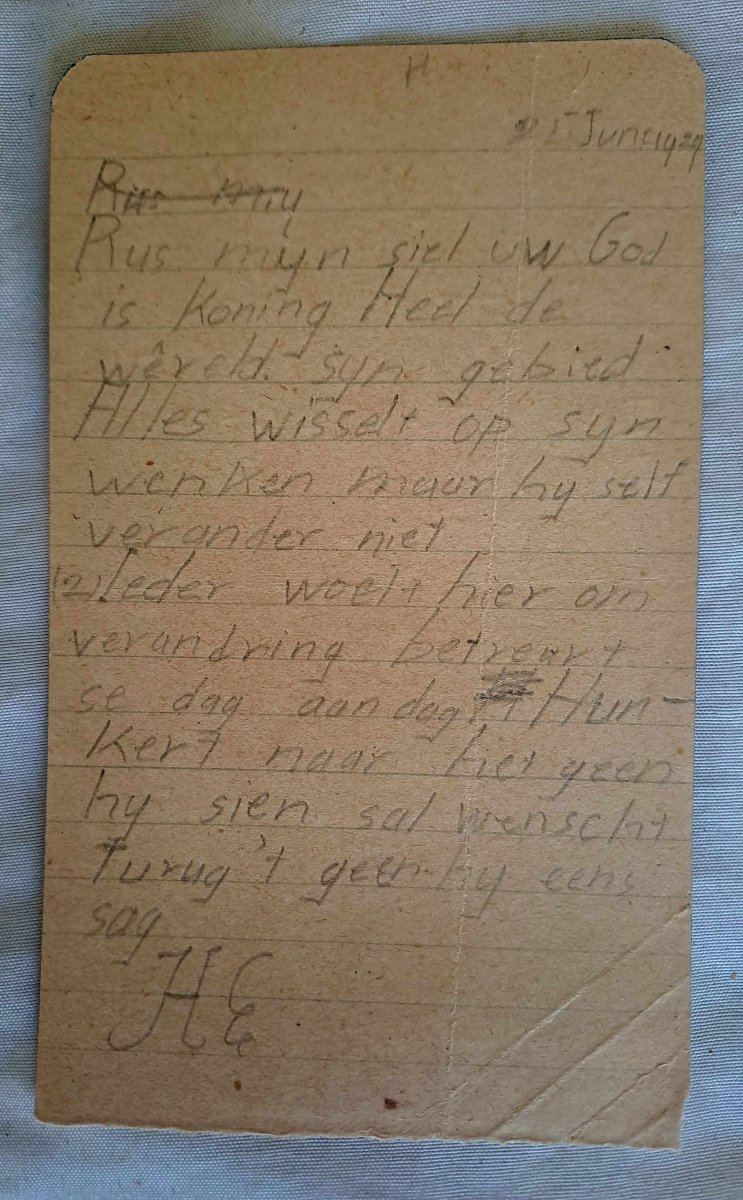 H
25 June 1929
Rus my
Rus myn siel uw God
is Koning Heel de
wêreld syn gebied
Alles wisselt op syn
wenken maar hy self
verander niet
(2) Ieder woelt hier om
verandring betreurt
se dag aan dag Hun-
kert naar het geen
hy sien sal wenscht
Turug 't geen hy eens
sag
HE